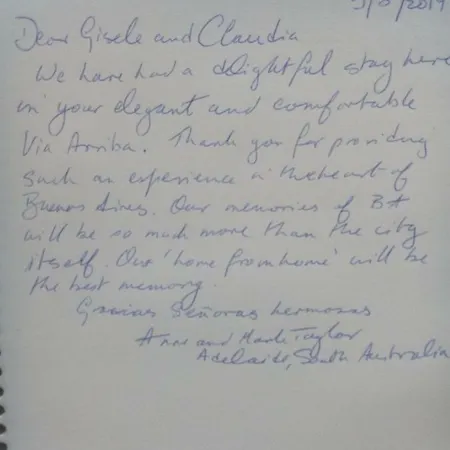 Dear Gisele and Claudia
We have had a delightful stay here
in your elegant and comfortable
Via Arriba. Thank you for providing
such an experience in the heart of
Buenos Aires. Our memories of BA
will be so much more than the city
itself. Our 'home from home' will be
the best memory.
Gracias Señoras hermosas
Anne and Mark Taylor
Adelaide, South Australia